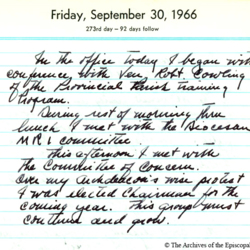 Friday, September 30, 1966
273rd day – 92 days follow
In the office today I began with
conference with Ven Robt. Cowling
of the Provincial Parish Training
Program.
During rest of morning thru
lunch I met with the Diocesan
MRI committee.
This afternoon I met with
the Committee of Concern.
Over my archdeacon's own protest
I was elected Chairman for the
coming year. This group must
continue and grow.
© The Archives of the Episcop